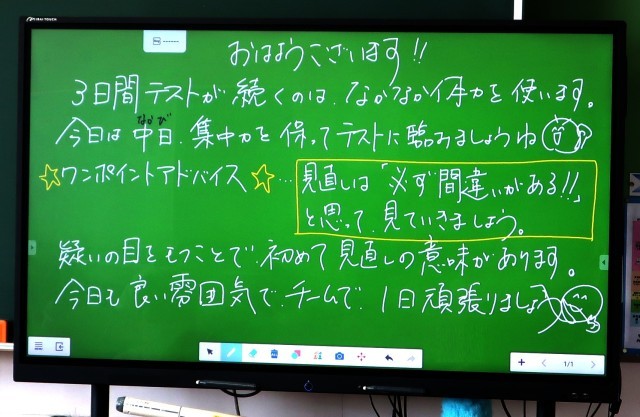 おはようございます!!
3日間テストが続くのは、なかなか体力を使います。
なかび
今日は中日、集中力を保ってテストに臨みましょうね
☆ワンポイントアドバイス☆…見直しは「必ず間違いがある!!」
と思って、見ていきましょう。
疑いの目をもつことで、初めて見直しの意味があります。
今日も良い雰囲気で、チームで、1日頑張りましょう
1/1